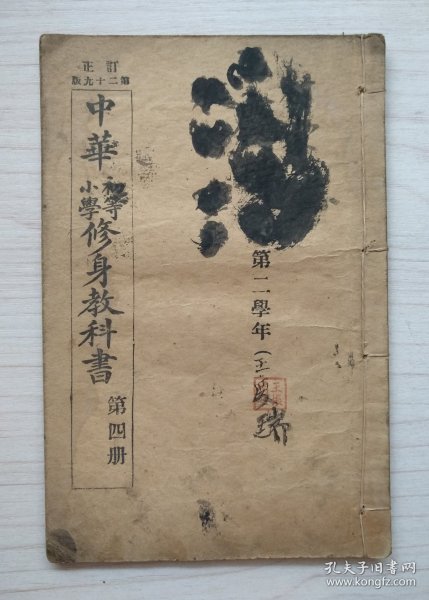 訂正
第二十九版
中華
初等
小學
修身教科書
第四册
第二學年
孔夫子旧书网
www.kongfz.com